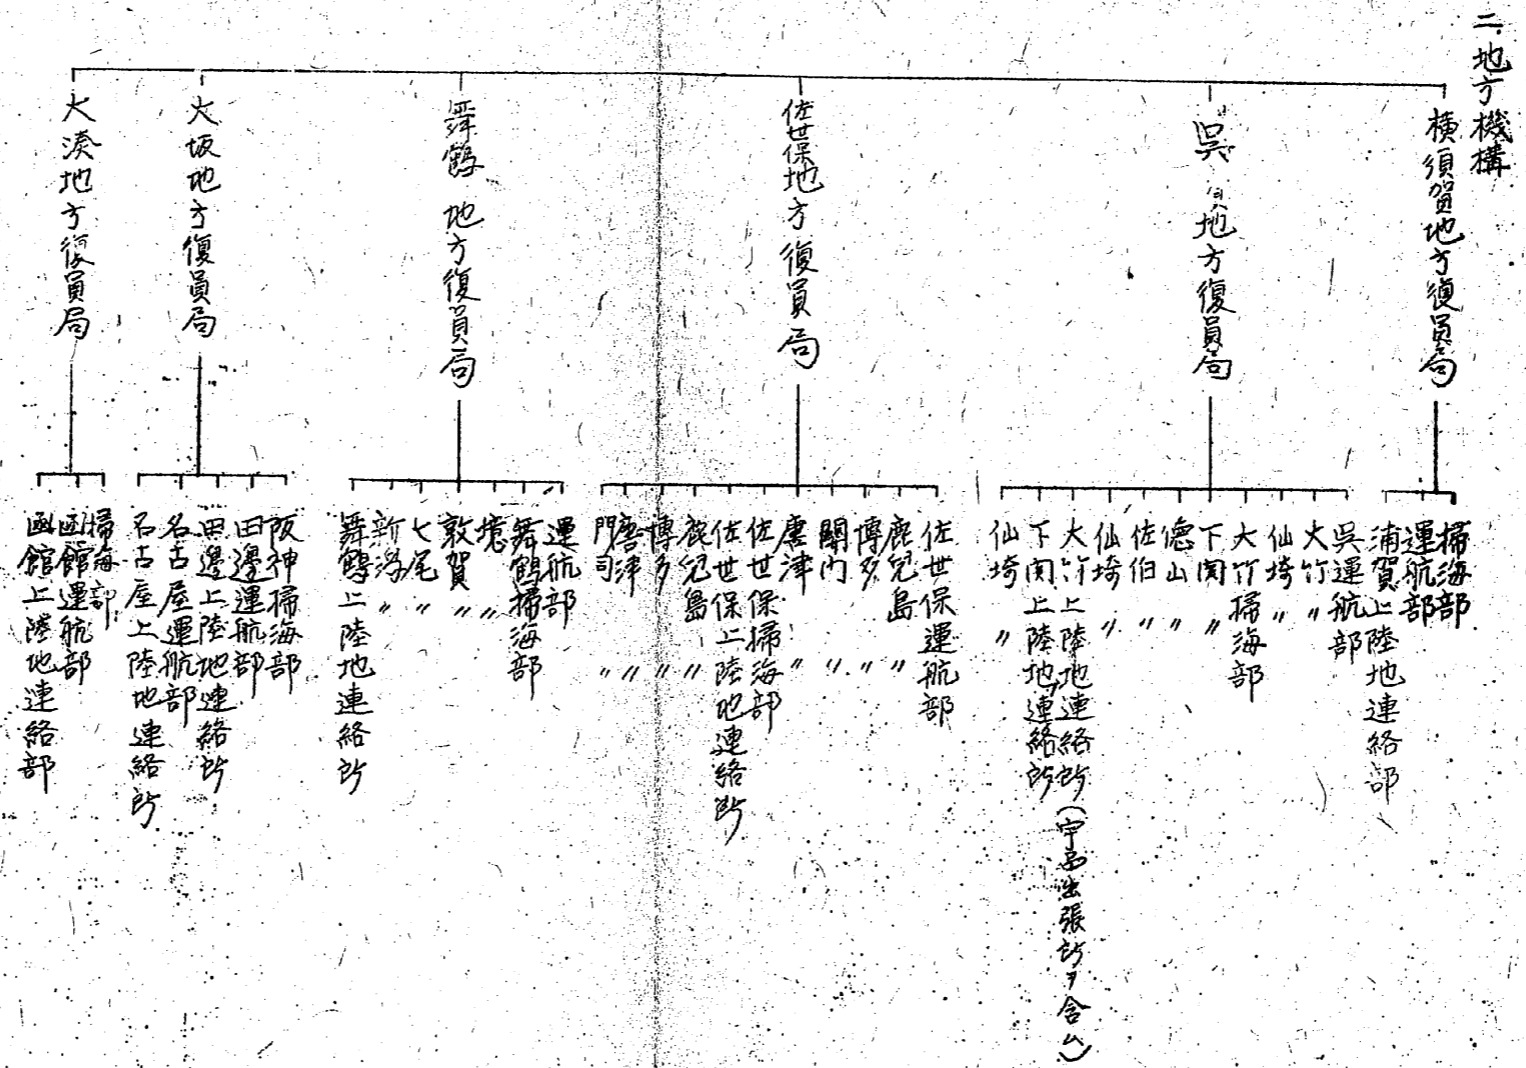 二、地方機構
横須賀地方復員局
掃海部
運航部
浦賀上陸地連絡部
呉地方復員局
呉運航部
大竹〃
仙埼〃
大竹掃海部
下関〃
徳山〃
佐伯〃
仙埼〃
大竹上陸地連絡所（宇品出張所ヲ含ム）
下関上陸地連絡所
仙埼〃
佐世保地方復員局
佐世保運航部
鹿児島〃
博多〃
關門〃
唐津〃
佐世保掃海部
佐世保上陸地連絡所
鹿児島〃
博多〃
唐津〃
門司〃
舞鶴地方復員局
運航部
舞鶴掃海部
境〃
敦賀〃
七尾〃
新潟〃
舞鶴上陸地連絡所
大坂地方復員局
阪神掃海部
田邊運航部
田邊上陸地連絡所
名古屋運航部
名古屋上陸地連絡所
大湊地方復員局
掃海部
函館運航部
函館上陸地連絡部